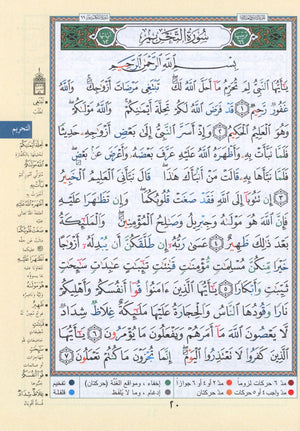 سُورَةُ التَّحْرِيمِ
بِسْمِ اللَّهِ الرَّحْمَٰنِ الرَّحِيمِ
يَا أَيُّهَا النَّبِيُّ لِمَ تُحَرِّمُ مَا أَحَلَّ اللَّهُ لَكَ تَبْتَغِي مَرْضَاتَ أَزْوَاجِكَ وَاللَّهُ
غَفُورٌ رَّحِيمٌ ١ قَدْ فَرَضَ اللَّهُ لَكُمْ تَحِلَّةَ أَيْمَانِكُمْ وَاللَّهُ مَوْلَاكُمْ
وَهُوَ الْعَلِيمُ الْحَكِيمُ ٢ وَإِذْ أَسَرَّ النَّبِيُّ إِلَىٰ بَعْضِ أَزْوَاجِهِ حَدِيثًا
فَلَمَّا نَبَّأَتْ بِهِ وَأَظْهَرَهُ اللَّهُ عَلَيْهِ عَرَّفَ بَعْضَهُ وَأَعْرَضَ عَن بَعْضٍ
فَلَمَّا نَبَّأَهَا بِهِ قَالَتْ مَنْ أَنبَأَكَ هَٰذَا قَالَ نَبَّأَنِيَ الْعَلِيمُ الْخَبِيرُ
٣ إِن تَتُوبَا إِلَى اللَّهِ فَقَدْ صَغَتْ قُلُوبُكُمَا وَإِن تَظَاهَرَا عَلَيْهِ
فَإِنَّ اللَّهَ هُوَ مَوْلَاهُ وَجِبْرِيلُ وَصَالِحُ الْمُؤْمِنِينَ وَالْمَلَائِكَةُ
بَعْدَ ذَٰلِكَ ظَهِيرٌ ٤ عَسَىٰ رَبُّهُ إِن طَلَّقَكُنَّ أَن يُبْدِلَهُ أَزْوَاجًا
خَيْرًا مِّنكُنَّ مُسْلِمَاتٍ مُّؤْمِنَاتٍ قَانِتَاتٍ تَائِبَاتٍ عَابِدَاتٍ سَائِحَاتٍ
ثَيِّبَاتٍ وَأَبْكَارًا ٥ يَا أَيُّهَا الَّذِينَ آمَنُوا قُوا أَنفُسَكُمْ وَأَهْلِيكُمْ
نَارًا وَقُودُهَا النَّاسُ وَالْحِجَارَةُ عَلَيْهَا مَلَائِكَةٌ غِلَاظٌ شِدَادٌ
لَّا يَعْصُونَ اللَّهَ مَا أَمَرَهُمْ وَيَفْعَلُونَ مَا يُؤْمَرُونَ ٦ يَا أَيُّهَا
الَّذِينَ كَفَرُوا لَا تَعْتَذِرُوا الْيَوْمَ إِنَّمَا تُجْزَوْنَ مَا كُنتُمْ تَعْمَلُونَ ٧
التحريم
مدّ ٦ حركات لزوماً
مدّ ٢ أو ٤ أو ٦ جوازاً
إخفاء، ومواقع الغُنَّة (حركتان)
تفخيم
مدّ واجب ٤ أو ٥ حركات
مدّ حركتان
إدغام، وما لا يُلفظ
قلقلة